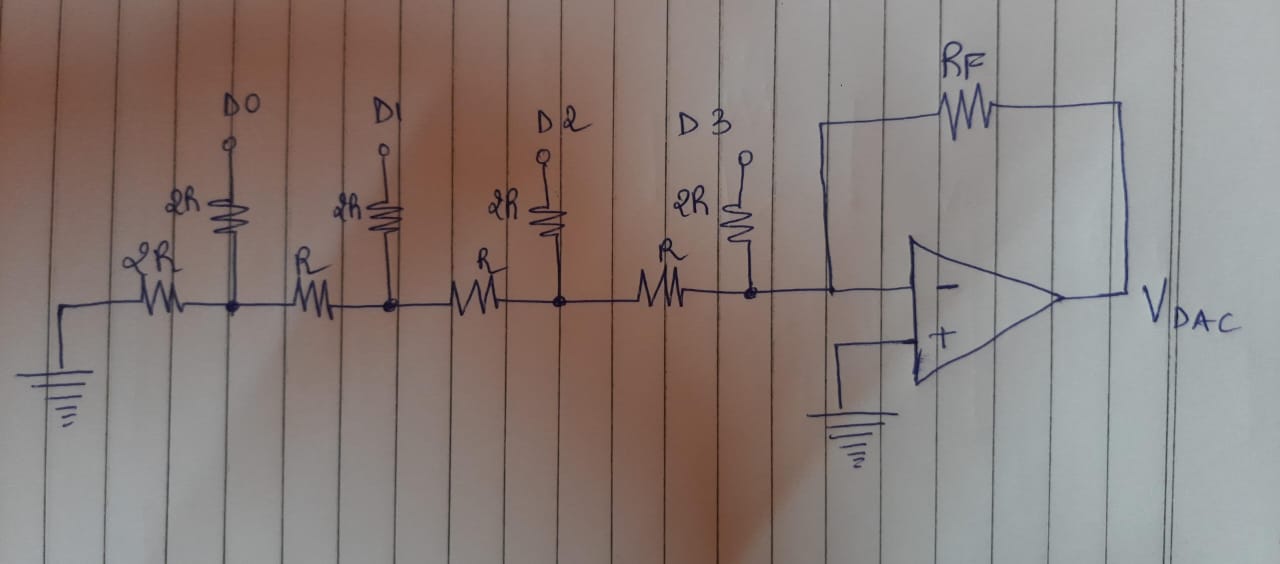 RF
D0 D1 D2 D3
2R 2R 2R 2R
2R R R R
-
+
VDAC